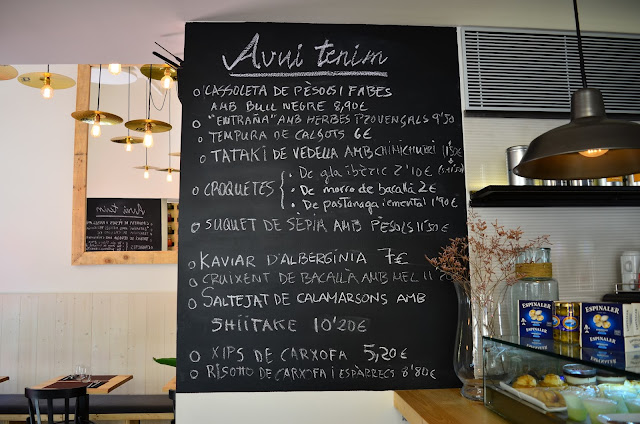 Avui tenim
CASSOLETA DE PÈSOLS I FABES
AMB BULL NEGRE 8,90€
"ENTRAÑA" AMB HERBES PROVENÇALS 9'50
TEMPURA DE CALÇOTS 6€
TATAKI DE VEDELLA AMB CHIMICHURRI 11'50€
CROQUETES
• De gla ibèric 2'10€
• De morro de bacallà 2€
• De pastanaga i emental 1'90€
SUQUET DE SÈPIA AMB PÈSOLS 11'50€
KAVIAR D'ALBERGINIA 7€
CRUIXENT DE BACALLÀ AMB MEL
SALTEJAT DE CALAMARSONS AMB
SHIITAKE 10'20€
XIPS DE CARXOFA 5,20€
RISOTTO DE CARXOFA I ESPÀRRECS 8'80€
Avui tenim
ESPINALER
ESPINALER